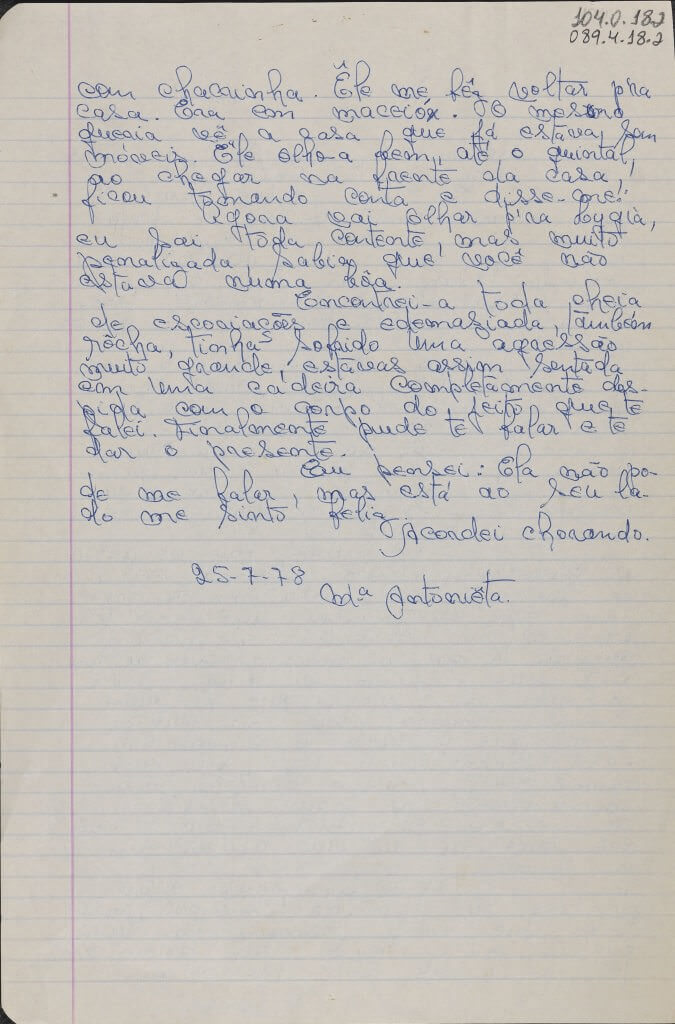 104.0.182
089.4.18.2
com chacrinha. Êle me fêz voltar p'ra
casa. Era em maceió. O mesmo
queria vê a casa que já estava sem
móveis. Êle olhoa bem, até o quintal,
ao chegar na frente da casa,
ficou tomando conta e disse-me:
Agora vai olhar p'ra Lygia,
eu sai toda contente, mas muito
penalizada, sabia que você não
estava numa bôa.
Encontrei-a toda cheia
de escoriações e edemaziada, também
rôcha, tinhas sofrido uma agressão
muito grande, estavas assim sentada
em uma cadeira completamente des-
pida com o corpo do jeito que te
falei. Finalmente pude te falar e te
dar o presente.
Eu pensei: Ela não po-
de me falar, mas está ao seu la-
do me sinto feliz
Acordei chorando.
25-7-78
Mª Antoniêta.